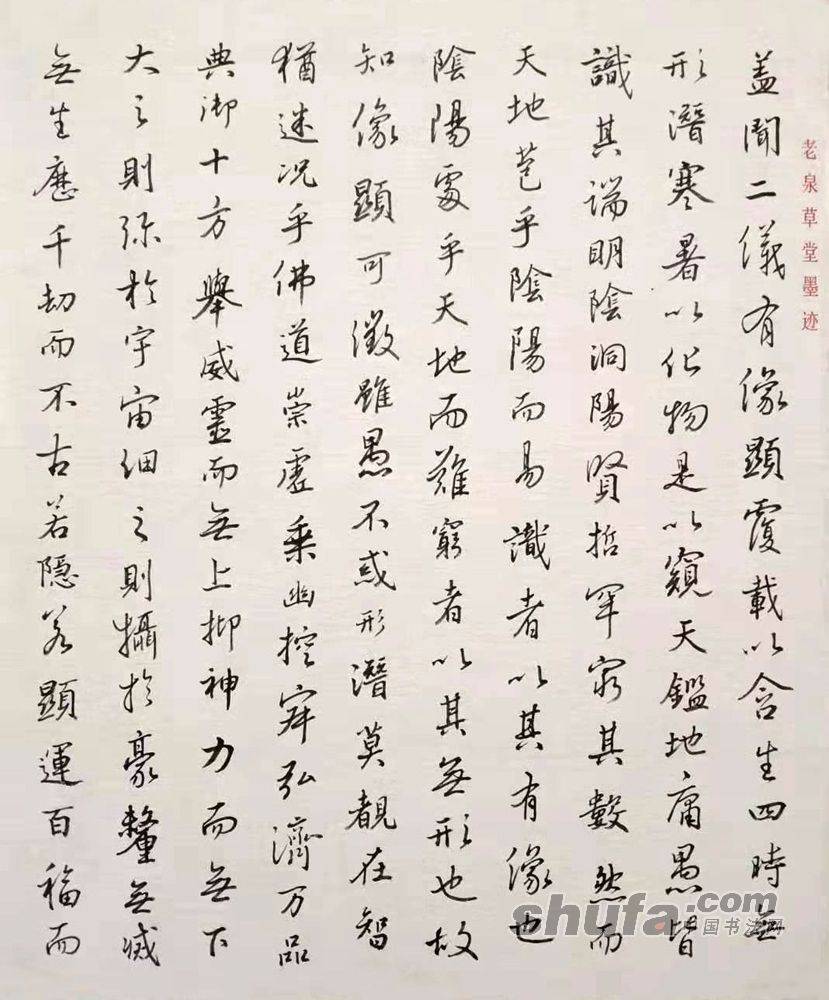 老泉草堂墨迹
盖聞二儀有像顯覆載以含生四時無
形潛寒暑以化物是以窺天鑑地庸愚皆
識其端明陰洞陽賢哲罕窮其數然而
天地苞乎陰陽而易識者以其有像也
陰陽處乎天地而難窮者以其無形也故
知像顯可徵雖愚不惑形潛莫覩在智
猶迷况乎佛道崇虛乘幽控寂弘濟万品
典御十方舉威靈而無上抑神力而無下
大之則弥於宇宙細之則攝於豪釐無滅
無生歷千劫而不古若隱若顯運百福而
shufa.com
中国书法网